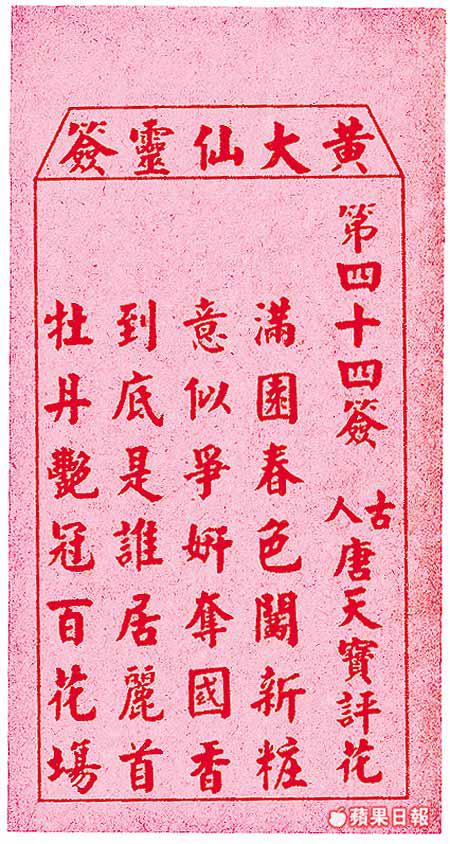 黃大仙靈簽
第四十四簽 古人 唐天寶評花
滿園春色鬭新粧
意似爭妍奪國香
到底是誰居麗首
牡丹艷冠百花塲
蘋果日報